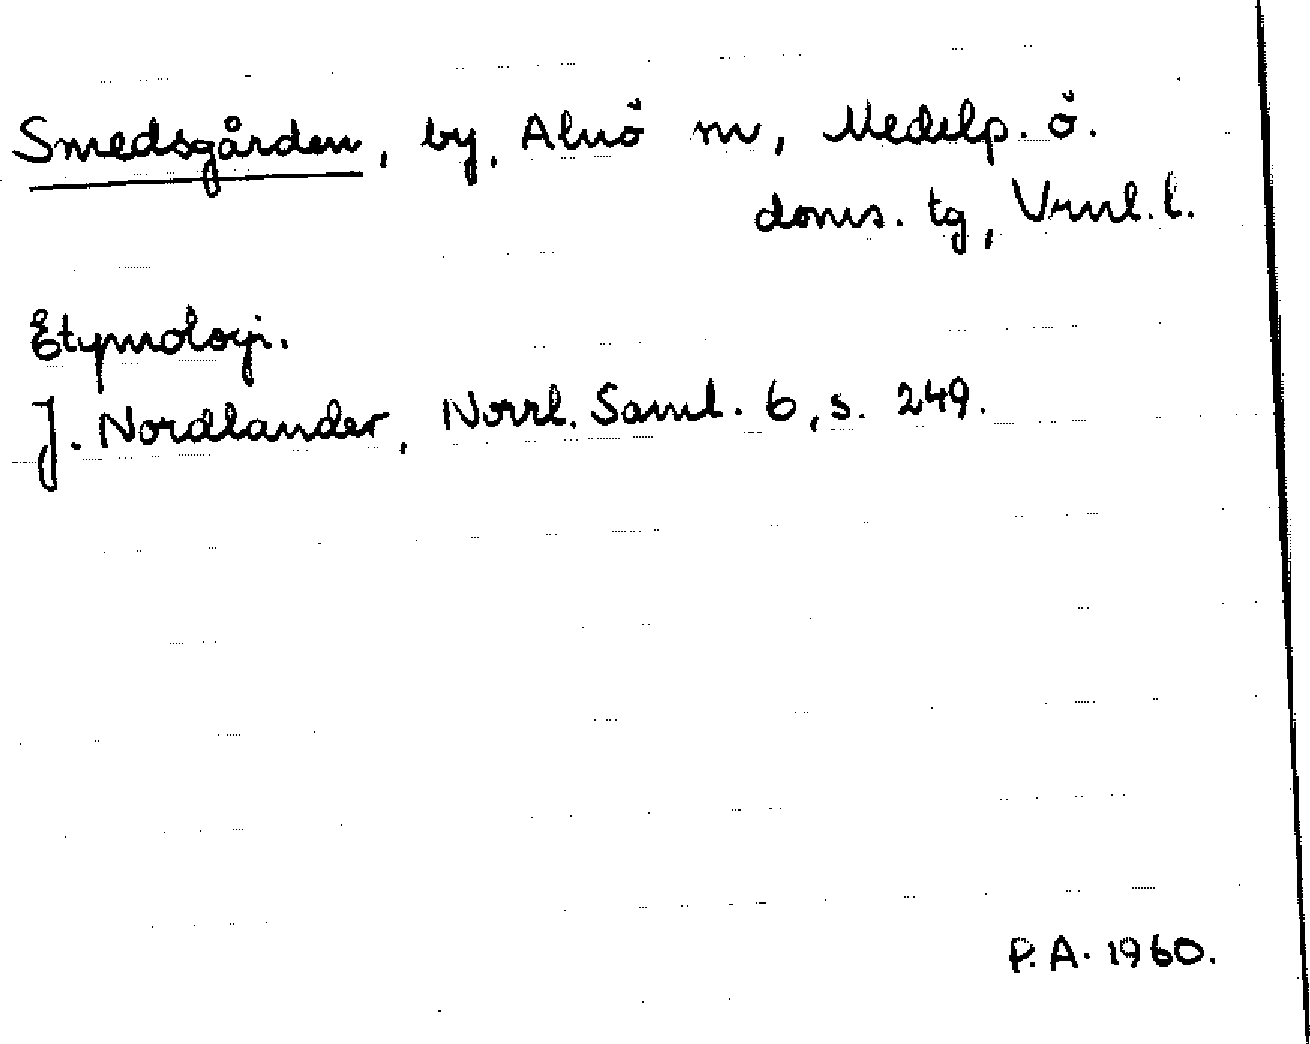 Smedsgården, by, Alnö sn, Medelp. ö.
doms. tg, Vrnl. l.
Etymologi.
J. Nordlander, Norrl. Saml. 6, s. 249.
P. A. 1960.